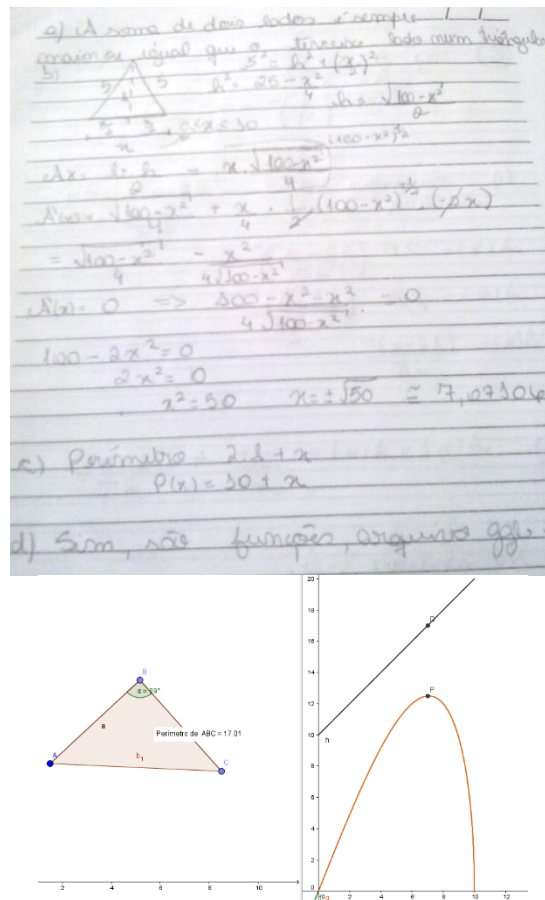 a) A soma de dois lados é sempre
maior ou igual que o terceiro lado num triângulo
b) 5² = h² + (x/2)²
5 5 h² = 25 - x²/4
h = √100-x² / 2
x 0<x<10
(100-x²)^1/2
Ax = b.h/2 = x.√100-x² / 4
A'(x) = √100-x² / 4 + x/4 . 1/2 (100-x²)^-1/2 . (-2x)
= √100-x² / 4 - x² / 4√100-x²
A'(x) = 0 => 100-x²-x² / 4√100-x² = 0
100 - 2x² = 0
2x² = 0
x² = 50 x = ±√50 ≅ 7,07106
c) Perímetro = 2.l + x
P(x) = 10 + x
d) Sim, são funções, arquivo ggb
B
Perímetro de ABC = 17.01
a
A
b₁
C
2 4 6 8 10
20
18
D
16
14
P
12
10
h
8
6
4
2
0
2 4 6 8 10 12